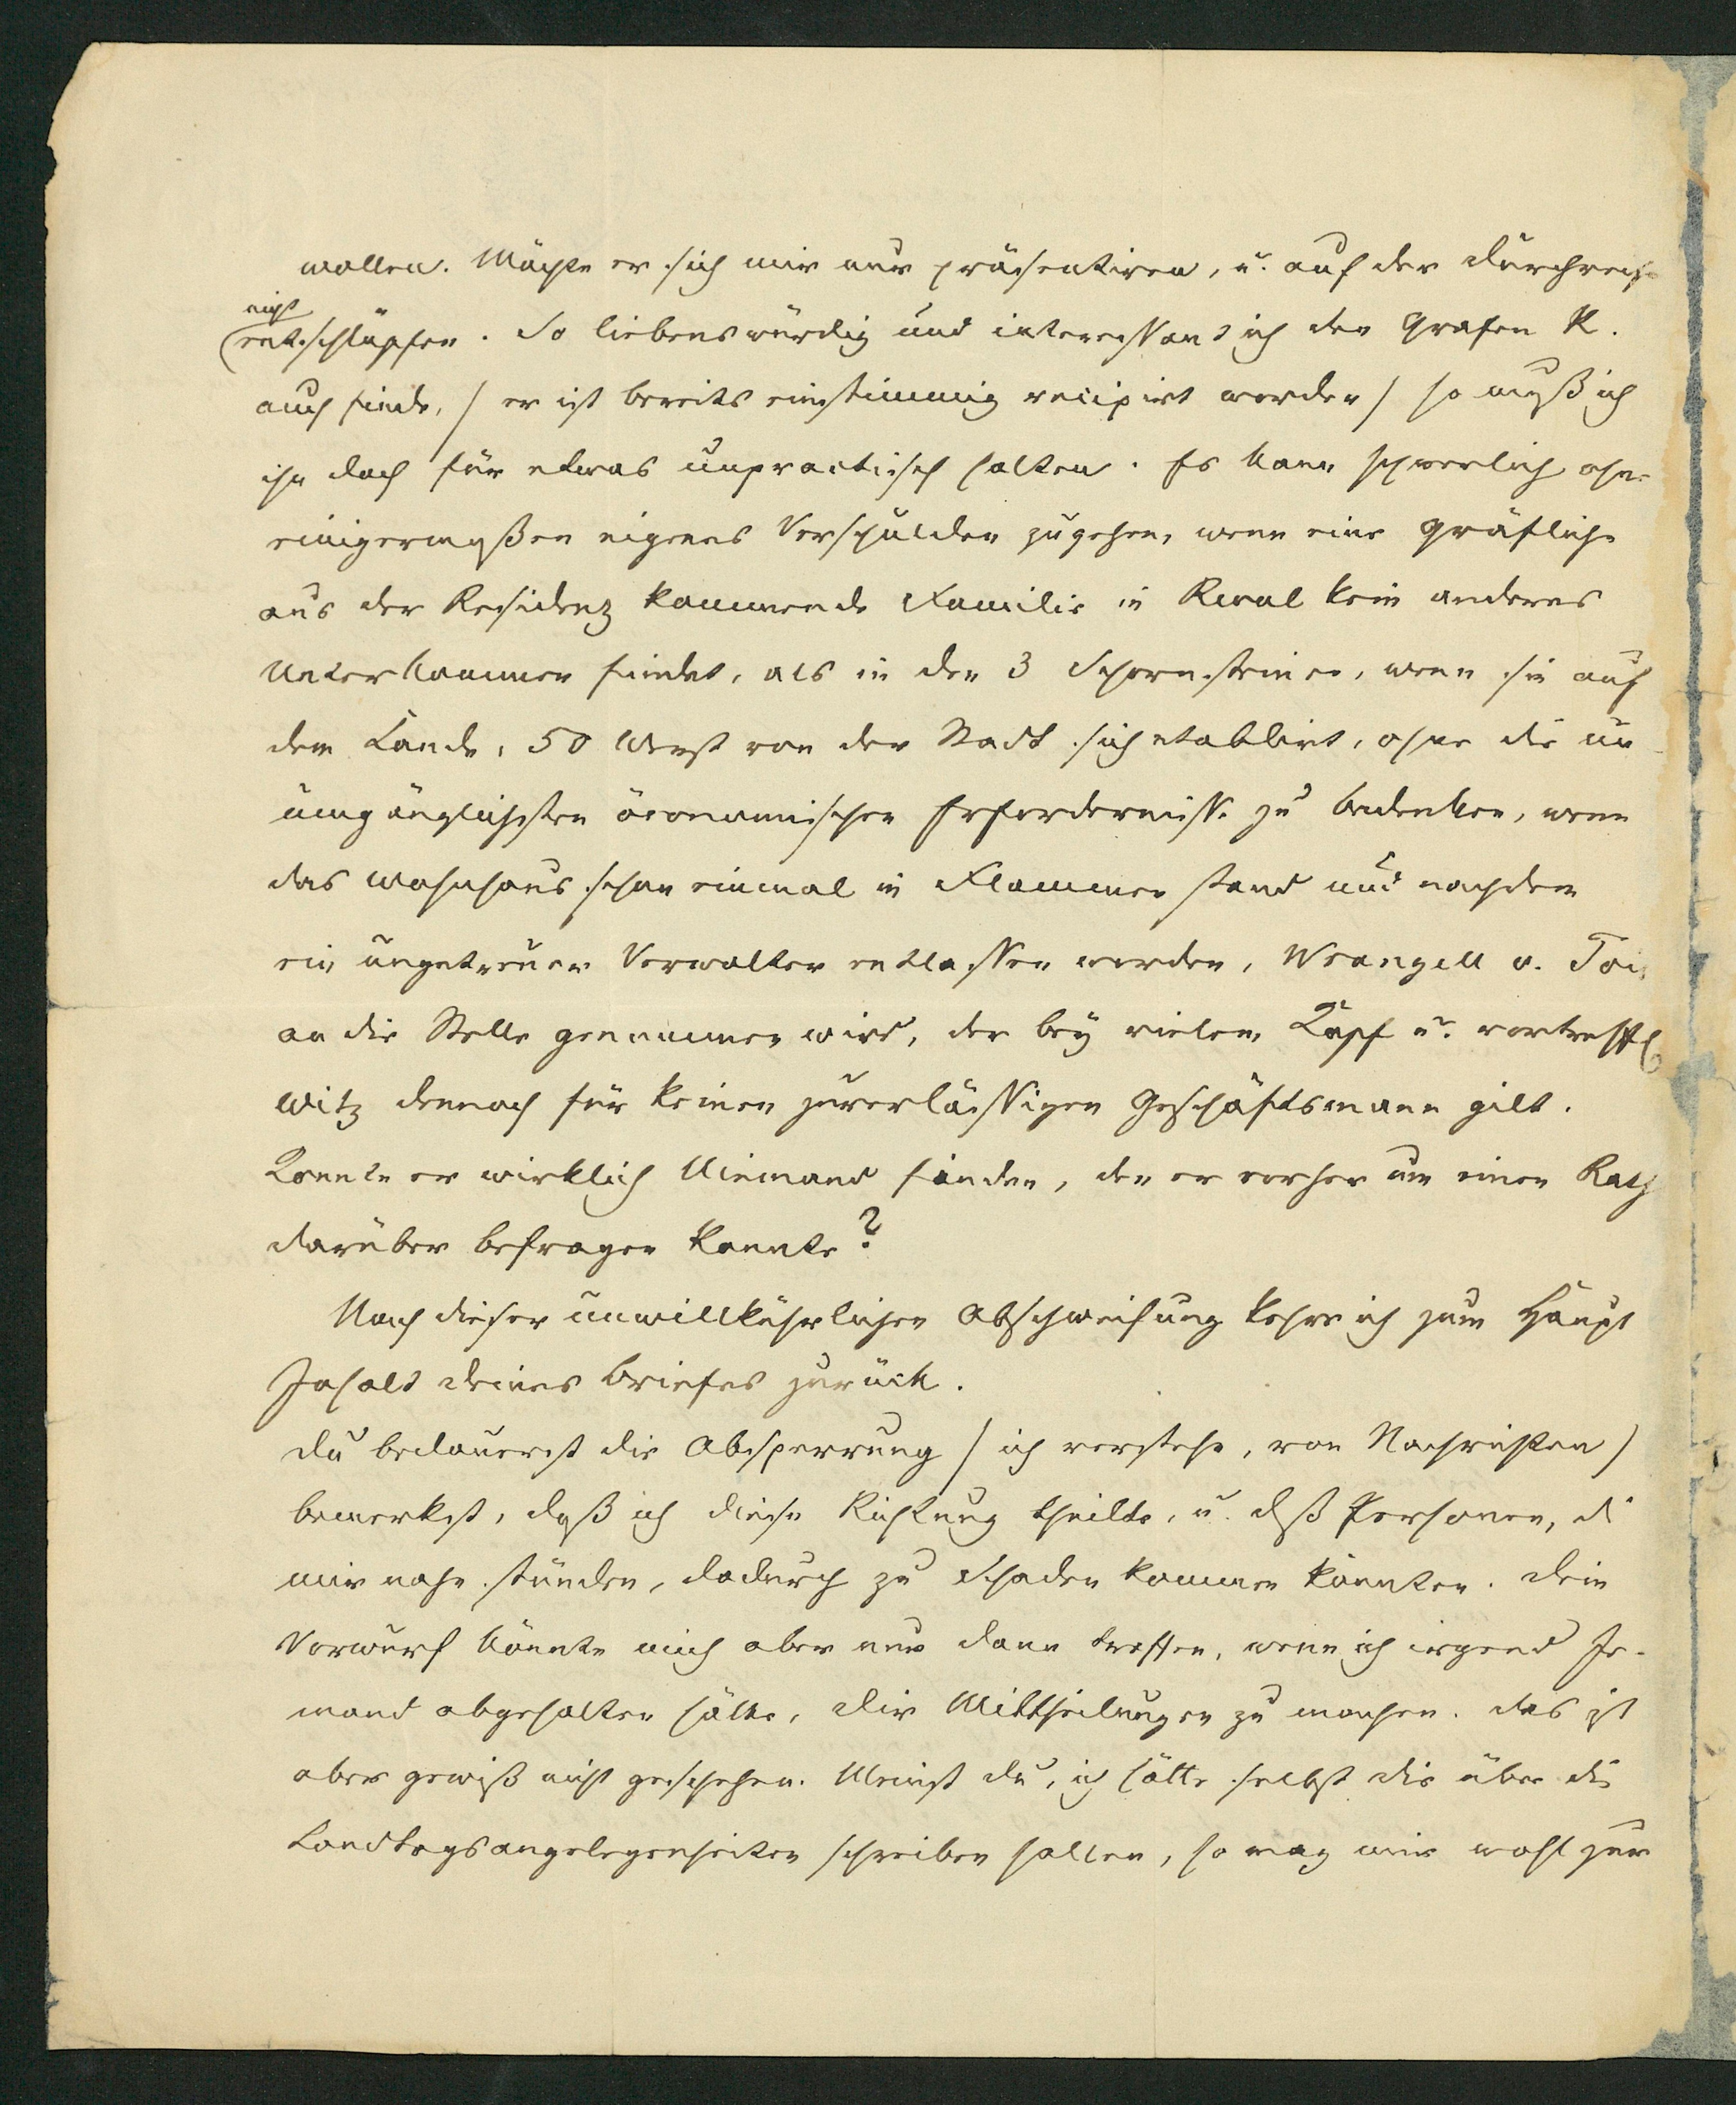 wollen. Möchte er sich mir nur präsentiren, u. auf der Durchreise
nicht
entschlüpfen. So liebenswürdig und interessant ich den Grafen K.
auch finde, / er ist bereits einstimmig recipirt worden / so muß ich
ihn doch für etwas unpractisch halten. Es kann schwerlich ohne
einigermaßen eigenes Verschulden zugehen, wenn eine gräfliche
aus der Residenz kommende Familie in Reval kein anderes
Unterkommen findet, als in den 3 Schornsteinen, wenn sie auf
dem Lande, 50 Werst von der Stadt sich etablirt, ohne die un-
umgänglichsten öconomischen Erfordernisse zu bedenken, wenn
das Wohnhaus schon einmal in Flammen stand und nachdem
ein ungetreuer Verwalter entlassen worden, Wrangell v.
an die Stelle genommen wird, der bey vielem Kopf u. vortreffl.
Witz dennoch für keinen zuverlässigen Geschäftsmann gilt.
Konnte er wirklich Niemand finden, den er vorher um einen Rath
darüber befragen konnte?
Nach dieser unwillkührlichen Abschweifung kehre ich zum Haupt
Inhalt deines Briefes zurück.
Du bedauerst die Absperrung / ich verstehe, von Nachrichten /
bemerkst, daß ich diese Richtung theilte, u. daß Personen, die
mir nahe stünden, dadurch zu Schaden kommen könnten. Dein
Vorwurf könnte mich aber nur dann treffen, wenn ich irgend Je-
mand abgehalten hätte, Dir Mittheilungen zu machen. Das ist
aber gewiß nicht geschehen. Meinst du, ich hätte selbst dir über die
Landtagsangelegenheiten schreiben sollen, so mag mir wohl zur